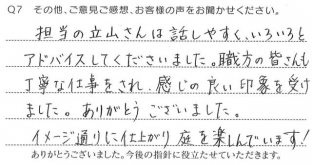 Q7 その他、ご意見ご感想、お客様の声をお聞かせください。
担当の立山さんは話しやすく、いろいろと
アドバイスしてくださいました。職方の皆さんも
丁寧な仕事をされ、感じの良い印象を受け
ました。ありがとうございました。
イメージ通りに仕上がり庭を楽しんでいます!
ありがとうございました。今後の指針に役立たせていただきます。